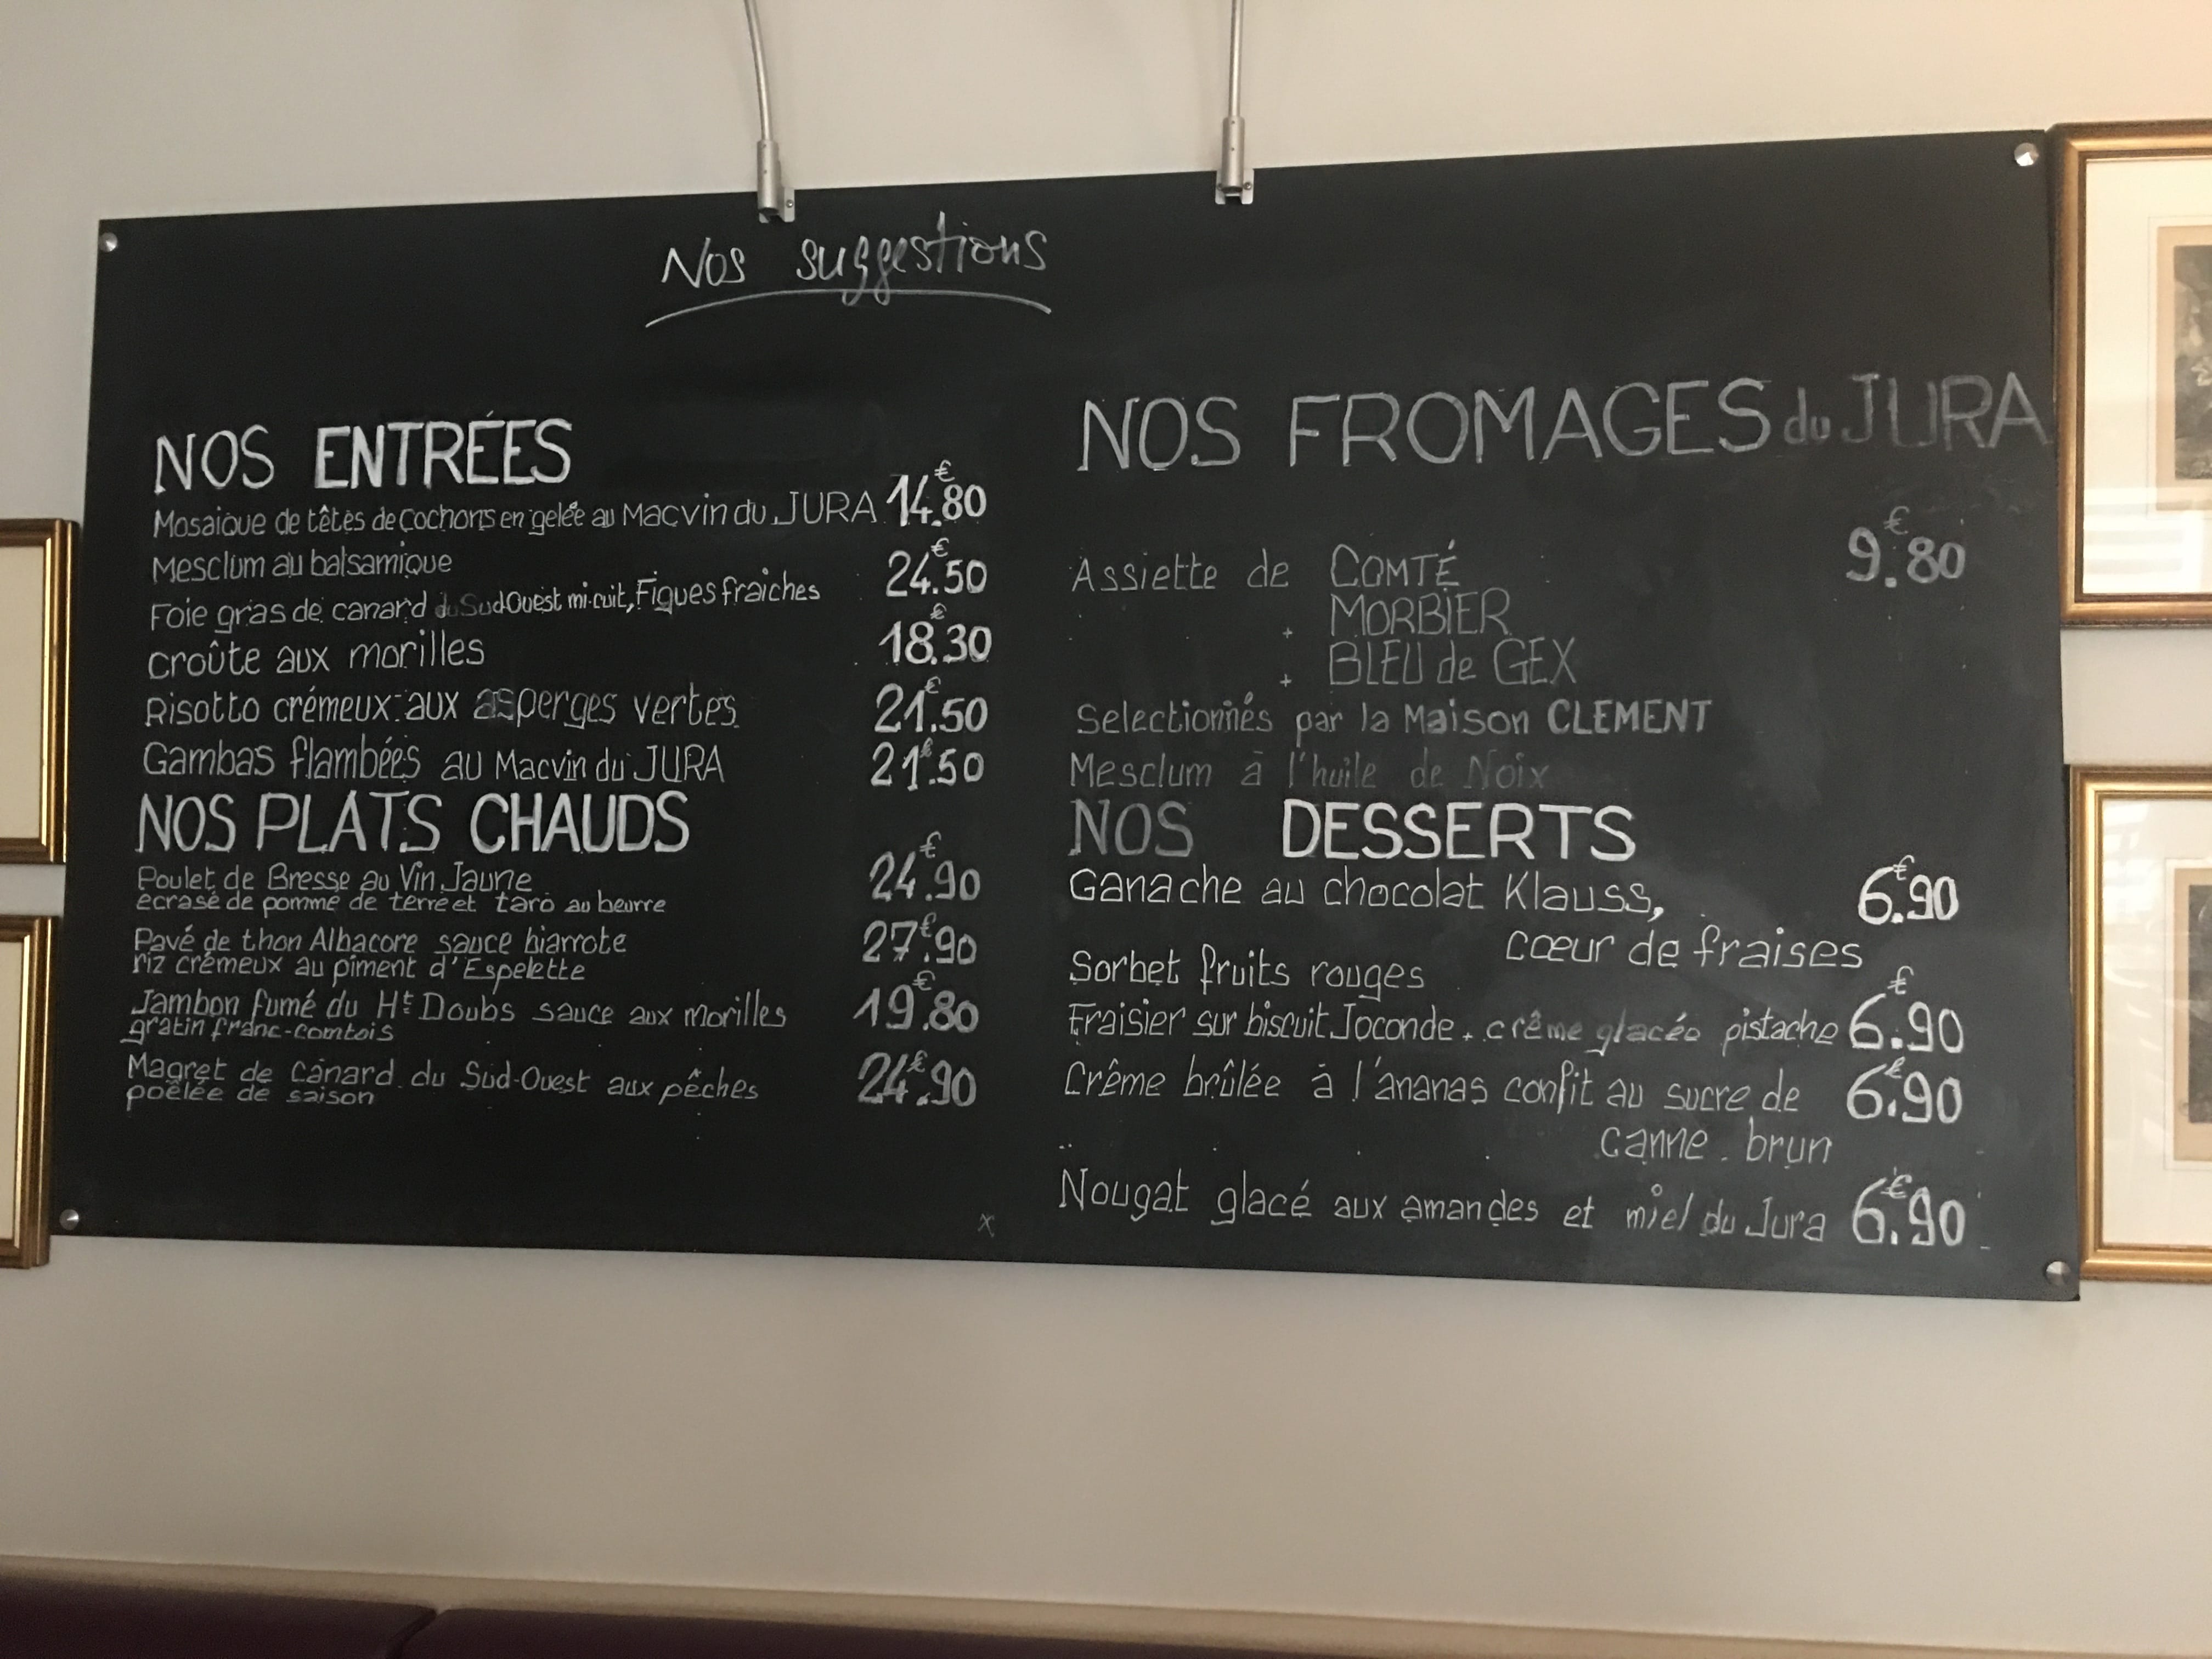 Nos suggestions
NOS ENTRÉES
Mosaique de têtes de cochons en gelée au Macvin du JURA 14.80€
Mesclum au balsamique
Foie gras de canard du Sud Ouest mi.cuit, Figues fraiches 24.50€
croûte aux morilles 18.30€
Risotto crémeux aux asperges vertes 21.50€
Gambas flambées au Macvin du JURA 21.50€
NOS PLATS CHAUDS
Poulet de Bresse au Vin Jaune 24.90€
ecrasé de pomme de terre et taro au beurre
Pavé de thon Albacore sauce biarrote 27.90€
riz crémeux au piment d'Espelette
Jambon fumé du Ht Doubs sauce aux morilles 19.80€
gratin franc-comtois
Magret de canard du Sud-Ouest aux pêches 24.90€
poêlée de saison
NOS FROMAGES du JURA
Assiette de COMTÉ 9.80€
+ MORBIER
+ BLEU de GEX
Selectionnés par la Maison CLEMENT
Mesclum à l'huile de Noix
NOS DESSERTS
Ganache au chocolat Klauss, 6.90€
cœur de fraises
Sorbet fruits rouges
Fraisier sur biscuit Joconde + crême glacée pistache 6.90€
Crême brûlée à l'ananas confit au sucre de 6.90€
canne brun
Nougat glacé aux amandes et miel du Jura 6.90€